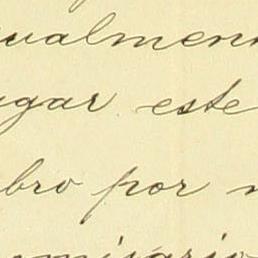 ualmen
gar este
bro por
misario